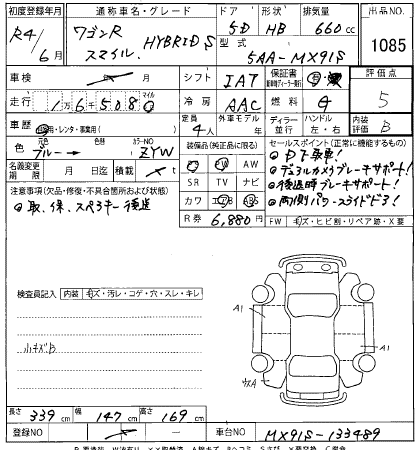 初度登録年月 通称車名・グレード ドア 形状 排気量 出品NO.
R4/6月 ワゴンR スマイル HYBRID S 5D HB 660cc 1085
型式 5AA-MX91S
車検 シフト IAT 保証書 評価点 5
走行 1 6 508 0 マイル 冷房 AAC 燃料 G
車歴 自家用・レンタ・事業用( ) 定員 4人 外車モデル 年 ディーラー 並行 ハンドル 左・右 内装評価 B
色 元色 ブルー → 色替 カラーNO ZYW
名義変更期限 月 日迄 積載 t
装備品(純正品に限る)
PS PW AW
SR TV ナビ
カワ エアB ABS
R券 6,880円
セールスポイント(正常に機能するもの)
・D下取車!
・デュアルカメラブレーキサポート!
・後退時ブレーキサポート!
・両側パワースライドドア!
注意事項(欠品・修復・不具合箇所および状態)
・取、保、スペアキー後送
FW キズ・ヒビ割・リペア跡・X要
検査員記入 内装 キズ・汚レ・コゲ・穴・スレ・キレ
小キズB
A1
A1
長さ 339cm 幅 147cm 高さ 169cm
登録NO 車台NO MX91S-133489